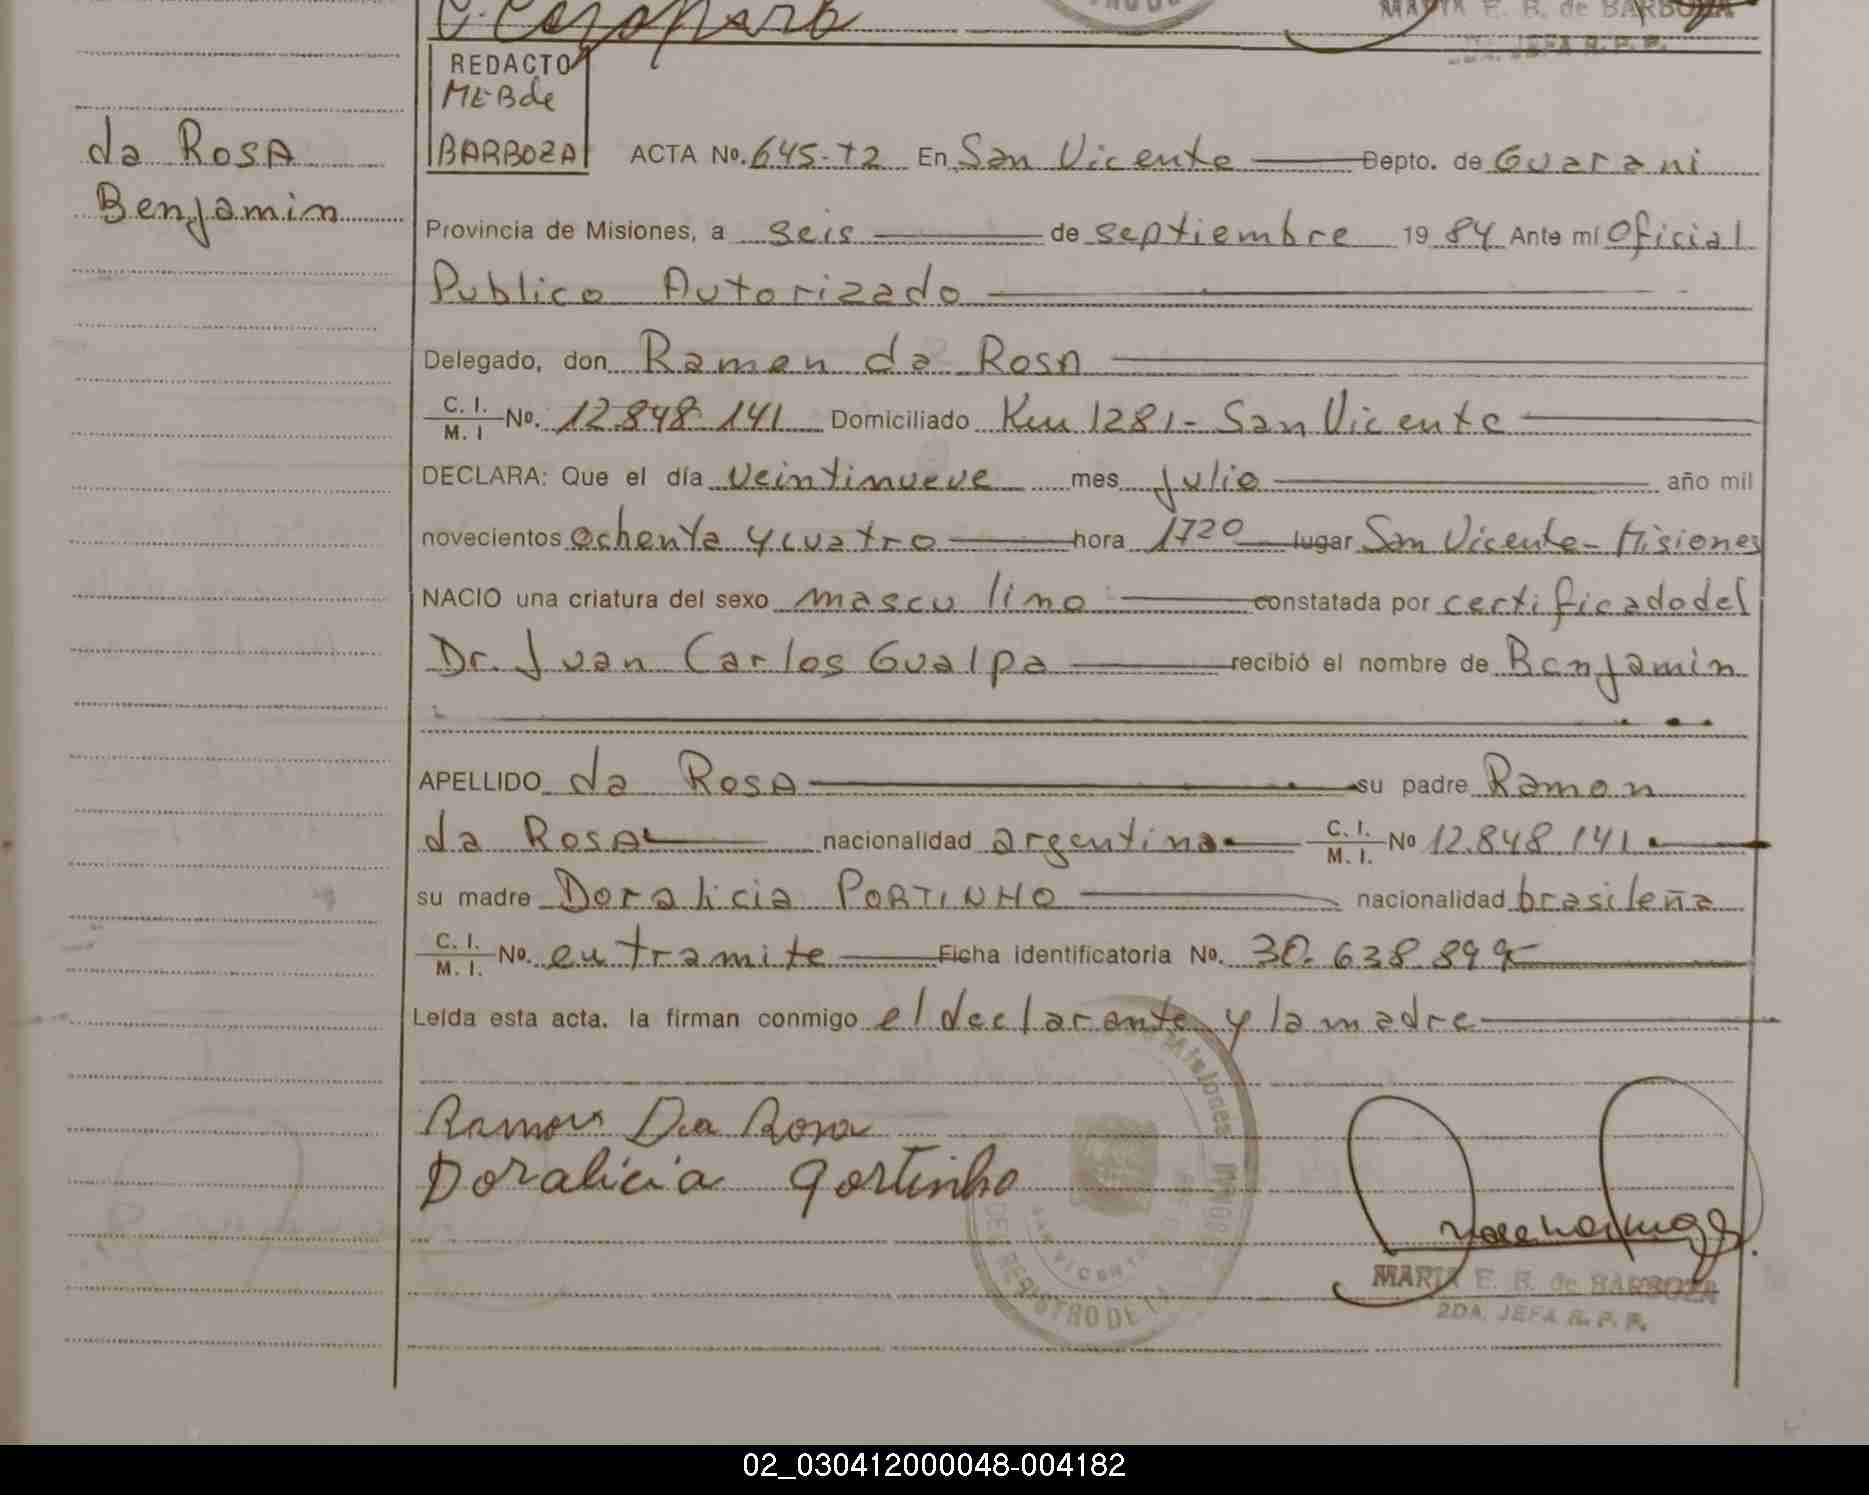 MARIA E. B. de BARBOZA
2DA. JEFA R. P. P.
REDACTO
MEBde
BARBOZA
da RosA
Benjamin
ACTA No. 645-T2 En San Vicente Depto. de Guarani
Provincia de Misiones, a seis de septiembre 1984 Ante mí Oficial
Publico Autorizado
Delegado, don Ramon da RosA
C. I. / M. I No. 12.848.141 Domiciliado Km 1281 - San Vicente
DECLARA: Que el día veintinueve mes julio año mil
novecientos ochenta y cuatro hora 1720 lugar San Vicente - Misiones
NACIO una criatura del sexo masculino constatada por certificado del
Dr. Juan Carlos Gualpa recibió el nombre de Benjamin
APELLIDO da RosA su padre Ramon
da RosA nacionalidad argentina C. I. / M. I. No 12.848.141
su madre Doralicia PORTINHO nacionalidad brasileña
C. I. / M. I. No. en tramite Ficha identificatoria No. 30.638.899
Leída esta acta. la firman conmigo el declarante y la madre
Ramon Da Rosa
Doralicia Portinho
MARIA E. B. de BARBOZA
2DA. JEFA R. P. P.
02_030412000048-004182